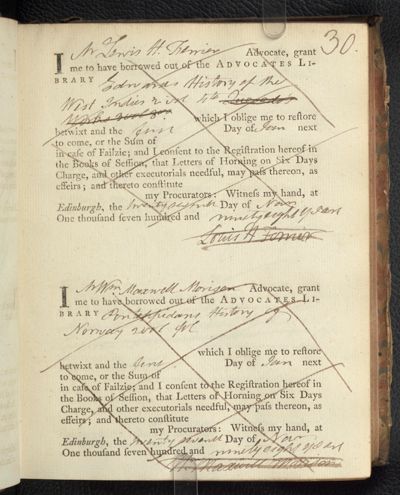 30.
I Mr Lewis H. Ferrier Advocate, grant
me to have borrowed out of the ADVOCATES LI-
BRARY Edwards History of the
West Indies 2 vol 4to
which I oblige me to reſtore
betwixt and the Day of Jan next
to come, or the Sum of
in caſe of Failzie; and I conſent to the Regiſtration hereof in
the Books of Seſſion, that Letters of Horning on Six Days
Charge, and other executorials needful, may paſs thereon, as
effeirs; and thereto conſtitute
my Procurators: Witneſs my hand, at
Edinburgh, the twenty seventh Day of Nov
One thouſand ſeven hundred and ninety eight years
Louis H Ferrier
I Mr Wm Maxwell Morison Advocate, grant
me to have borrowed out of the ADVOCATES LI-
BRARY Pontoppidans History of
Norway 2 vol fol
which I oblige me to reſtore
betwixt and the Day of Jan next
to come, or the Sum of
in caſe of Failzie; and I conſent to the Regiſtration hereof in
the Books of Seſſion, that Letters of Horning on Six Days
Charge, and other executorials needful, may paſs thereon, as
effeirs; and thereto conſtitute
my Procurators: Witneſs my hand, at
Edinburgh, the twenty seventh Day of Nov
One thouſand ſeven hundred and ninety eight years
Wm Maxwell Morison